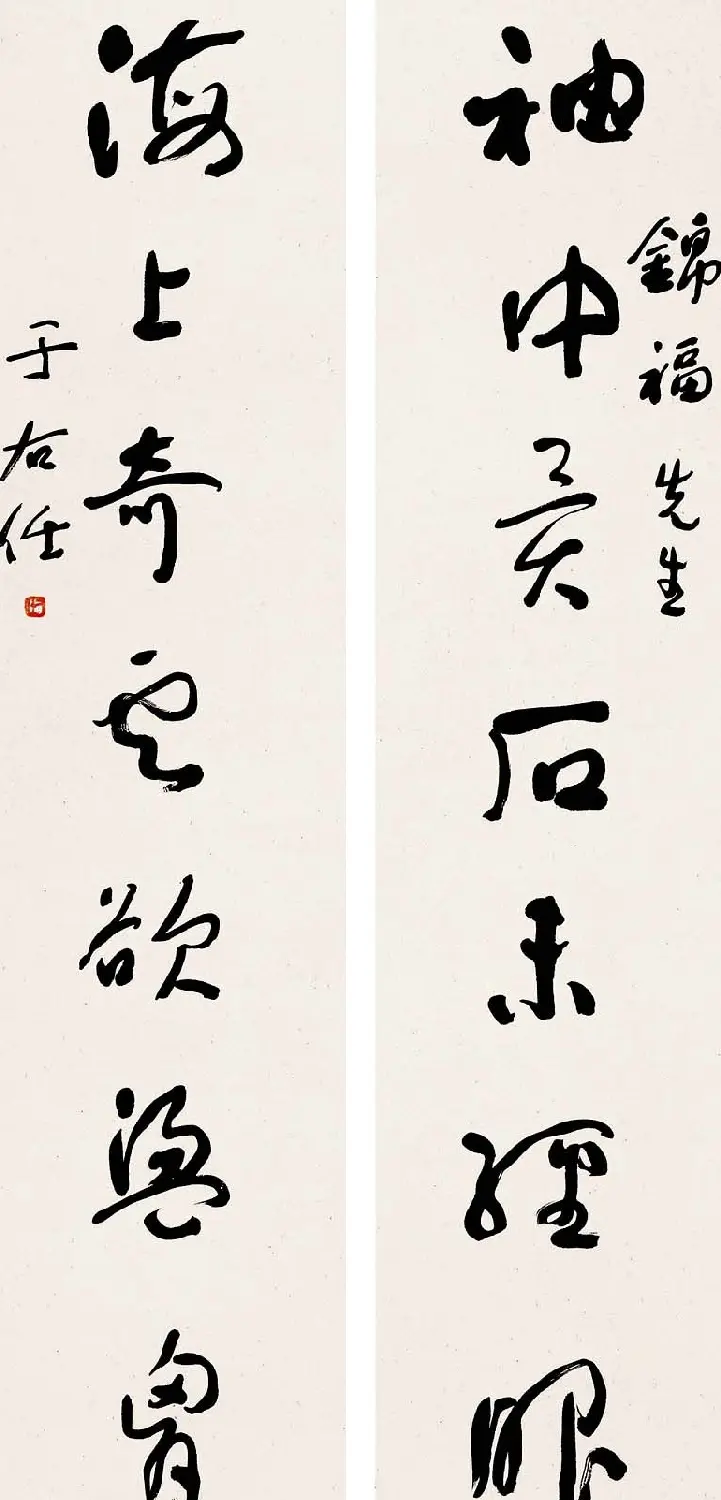 錦福先生
袖中異石未經眼
海上奇雲欲盪胷
于右任